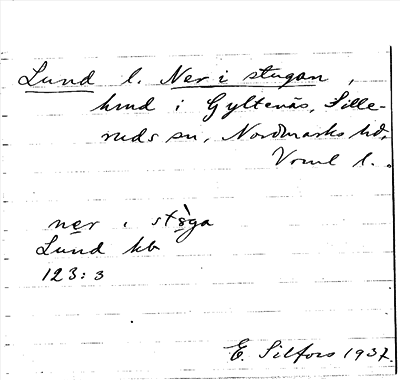 Lund l. Ner i stugan,
hmd i Gyltenäs, Sille-
ruds sn, Nordmarks hd,
Vrml l.
ner i stòga
Lund hb
123:3
E. Silfors 1937.